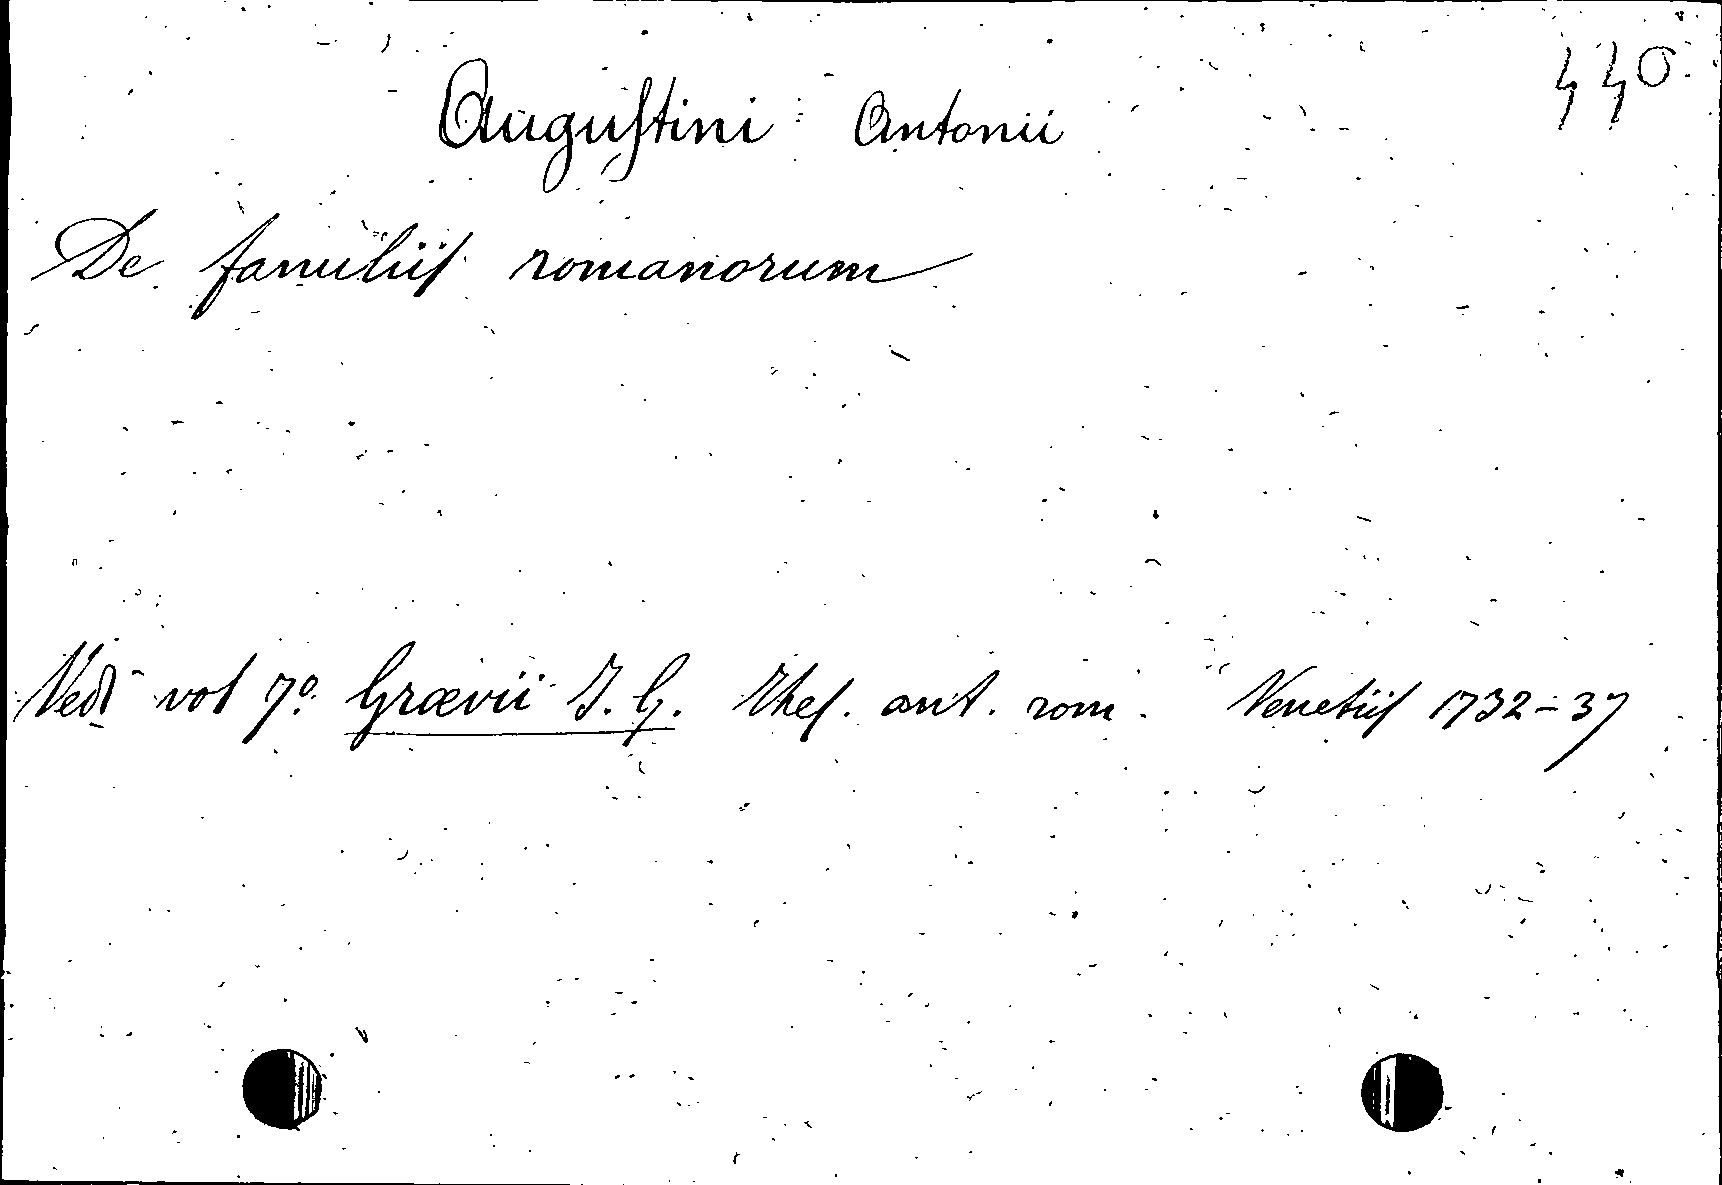 440
Augustini Antonii
De familiis romanorum
Vedi vol 7º Grævii J. G. Thes. ant. rom. Venetiis 1732-37